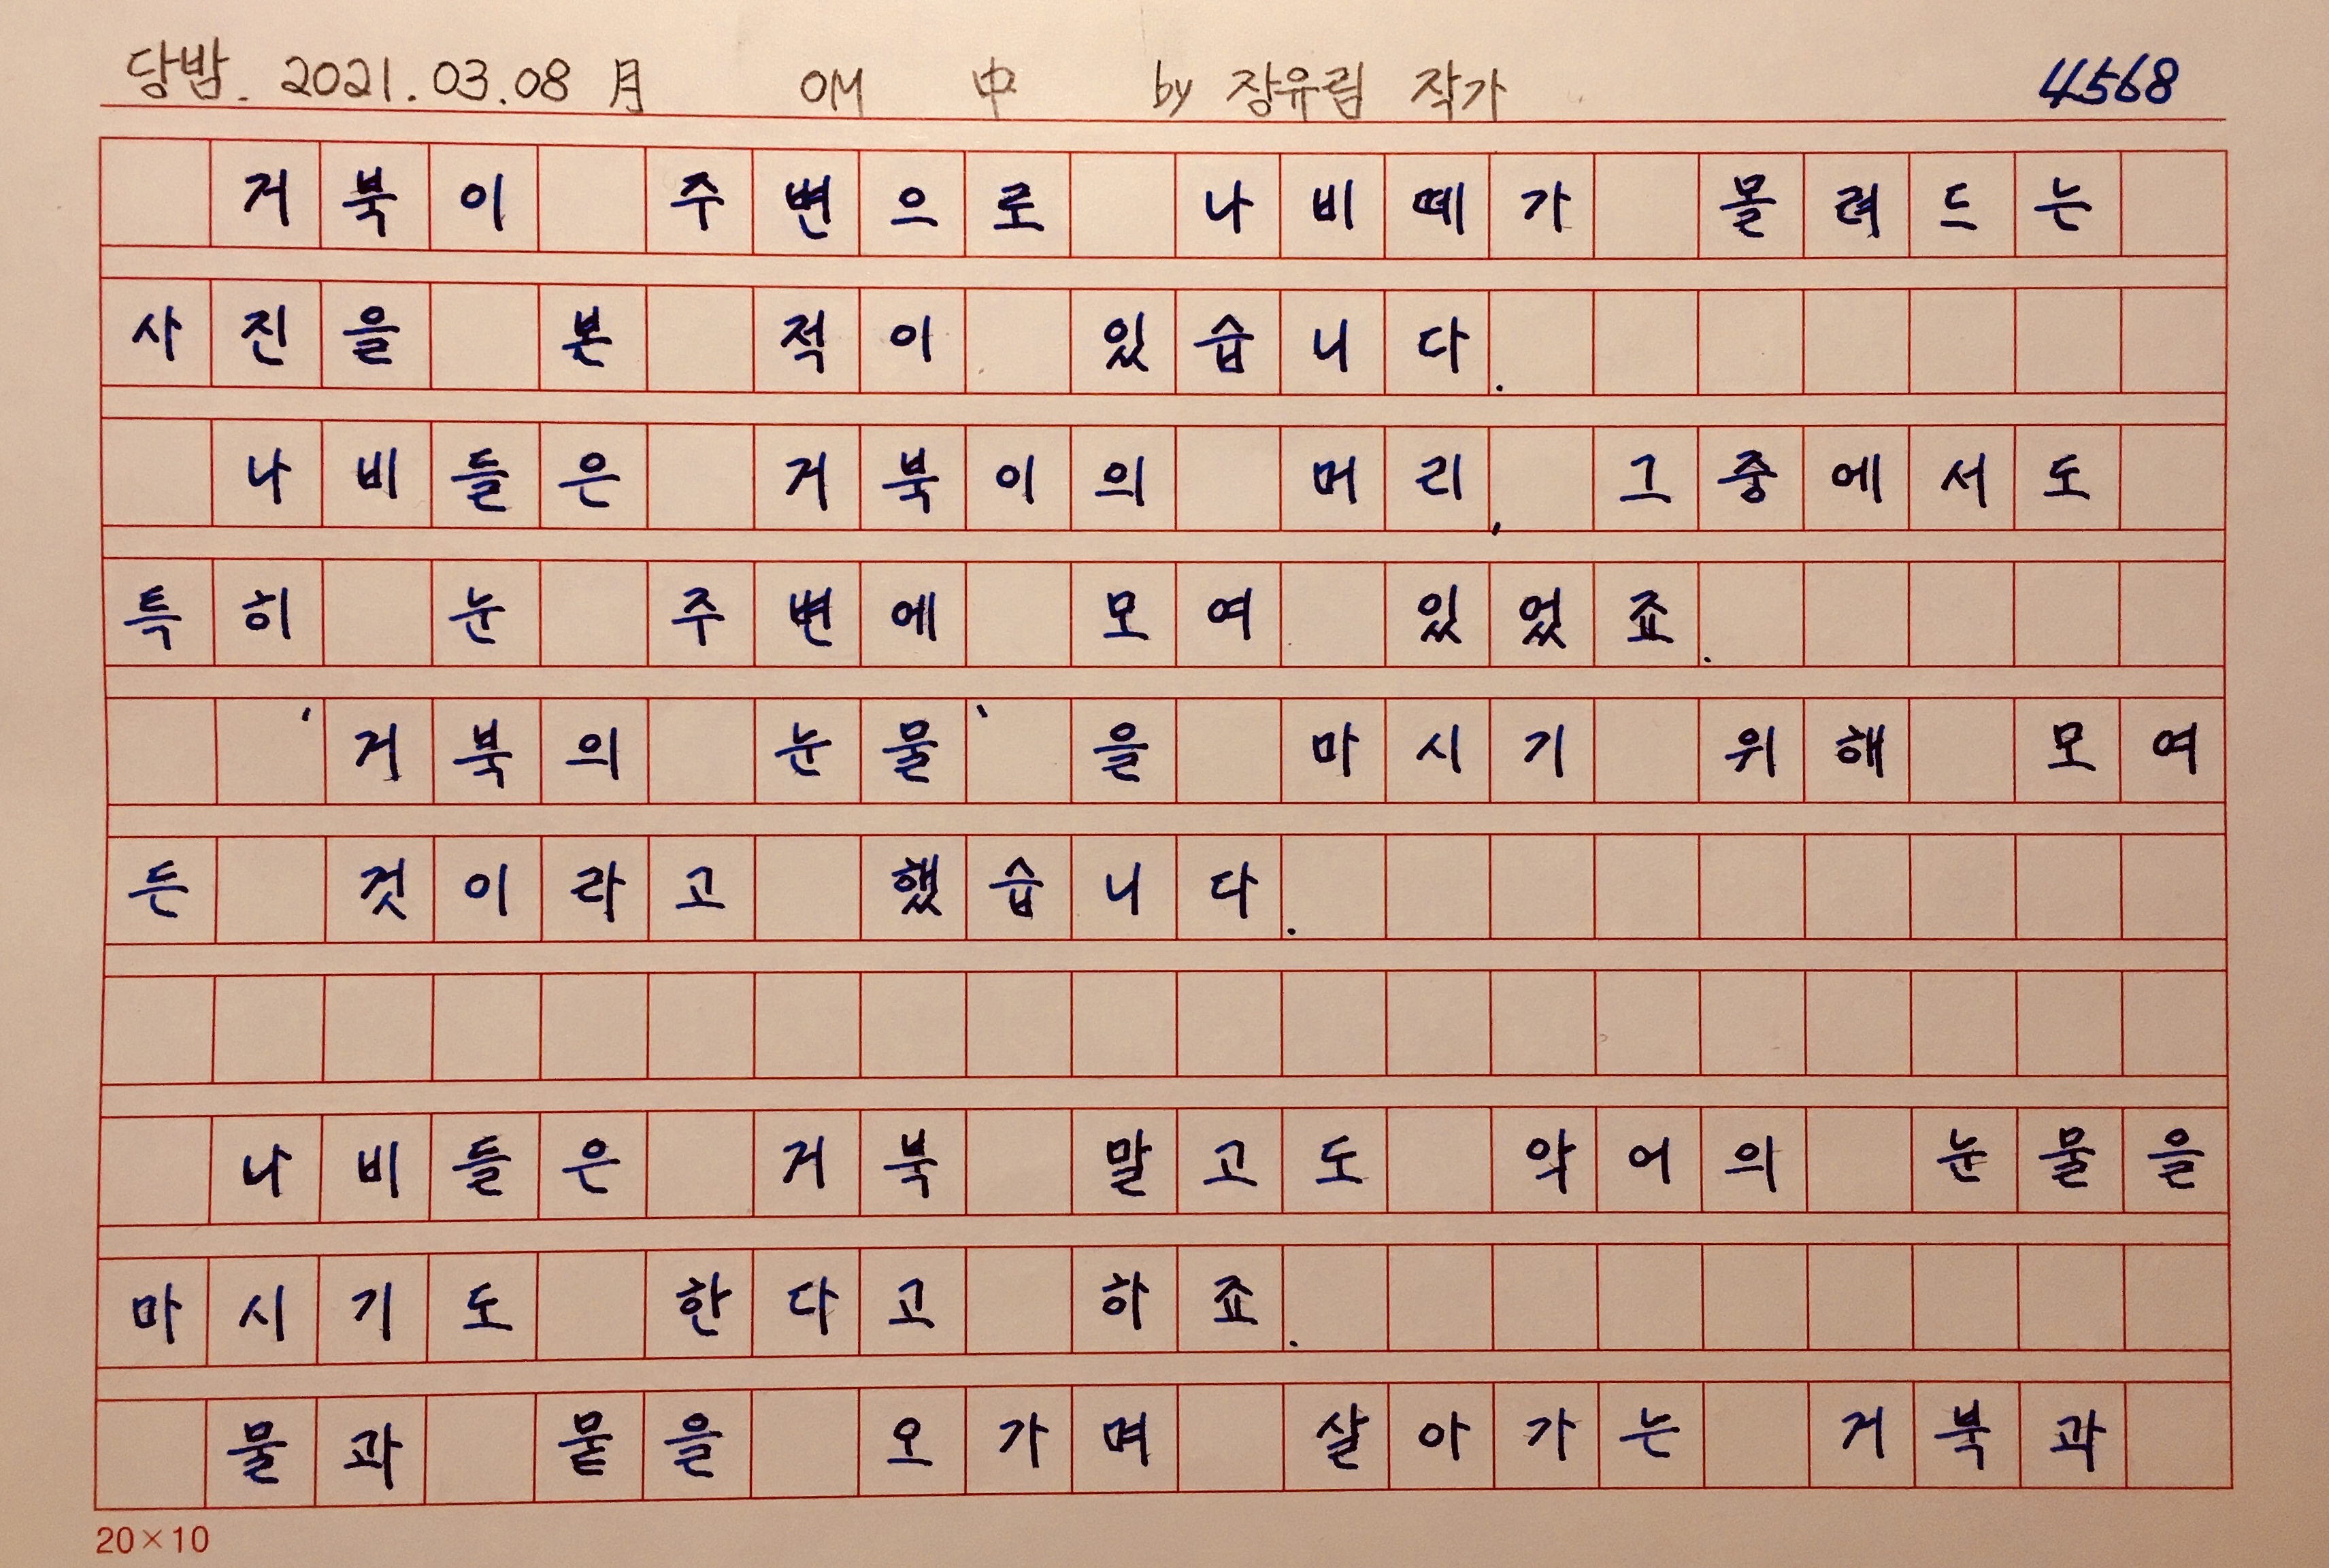 당밤. 2021.03.08 月 OM 中 by 장유림 작가 4568
거북이 주변으로 나비떼가 몰려드는
사진을 본 적이 있습니다.
나비들은 거북이의 머리, 그중에서도
특히 눈 주변에 모여 있었죠.
'거북의 눈물'을 마시기 위해 모여
든 것이라고 했습니다.
나비들은 거북 말고도 악어의 눈물을
마시기도 한다고 하죠.
물과 뭍을 오가며 살아가는 거북과
20×10